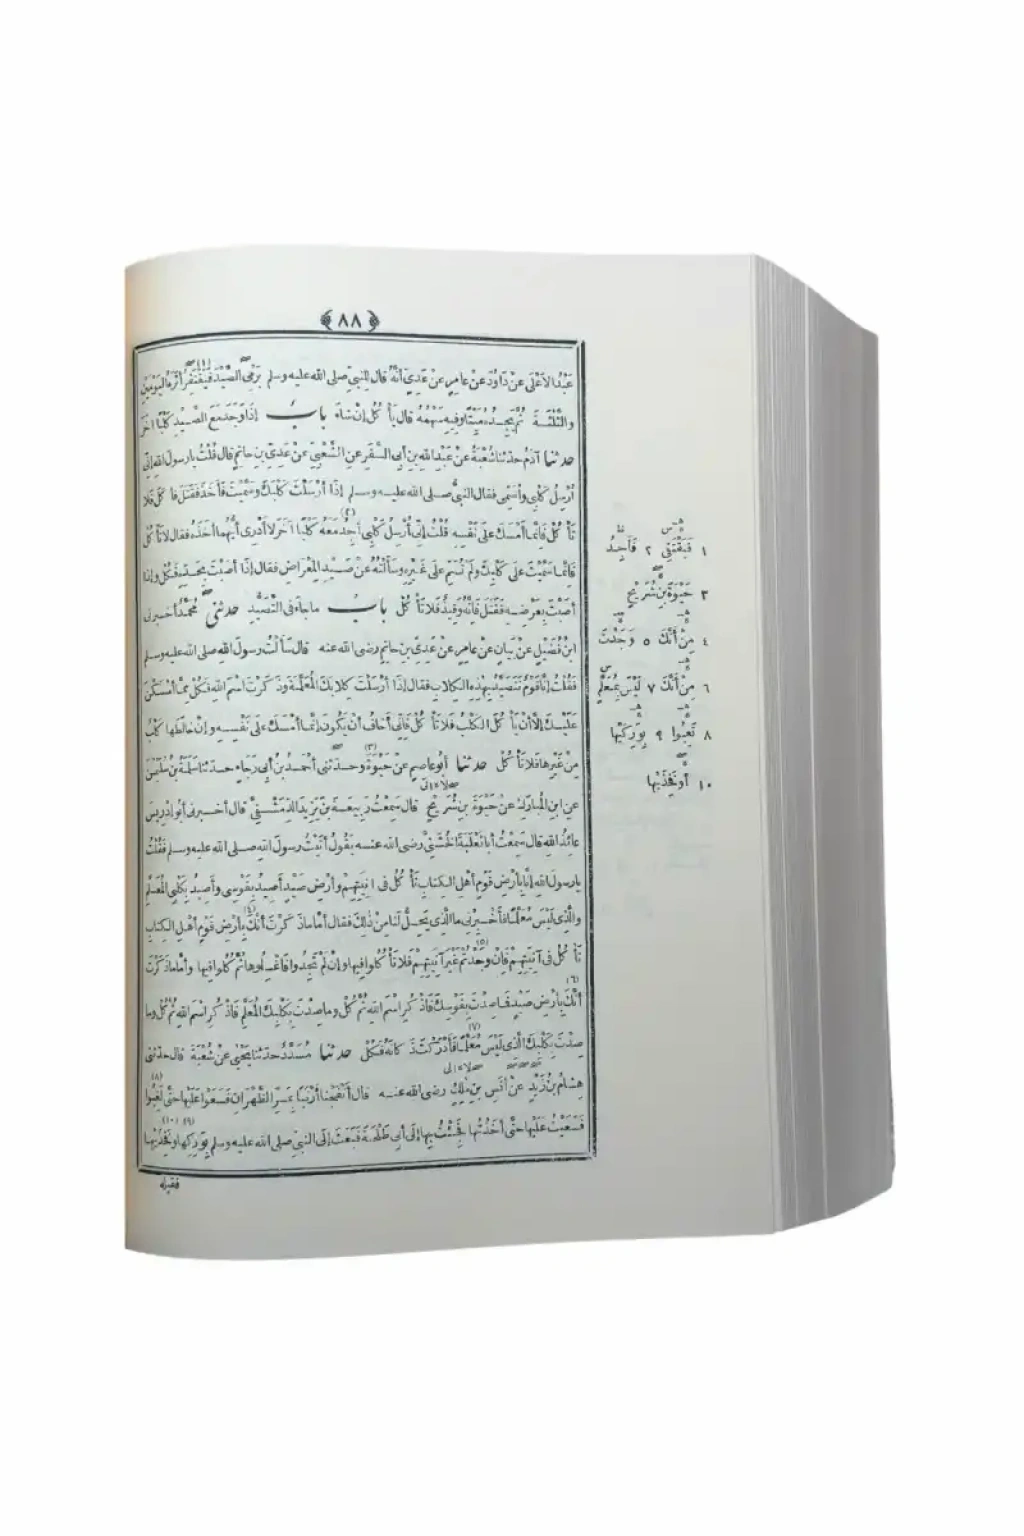 ﴿ ٨٨ ﴾
عَبْدُ الاَعْلَى عَنْ دَاوُدَ عَنْ عَامِرٍ عَنْ عَدِيٍّ أَنَّهُ قال لِلنبيّ صلى الله عليه وسلم يَرْمِى الصَّيْدَ فَيَفْتَقِرُ (١) أَثَرَهُ اليَوْمَيْنِ
والثَّلٰثَةَ ثُمَّ يَجِدُهُ مَيِّتًا وفِيهِ سَهْمُهُ قال يَأْكُلُ إنْ شاءَ بابُ إذَا وَجَدَ مَعَ الصَّيْدِ كَلْبًا آخَرَ
حدثنا آدَمُ حدّثنا شُعْبَةُ عَنْ عَبْدِ اللهِ بنِ أَبِى السَّفَرِ عنِ الشَّعْبِيِّ عَنْ عَدِيِّ بنِ حاتِمٍ قال قُلْتُ يا رسولَ اللهِ إنِّى
أُرْسِلُ كَلْبِى وأُسَمِّى فقال النبيُّ صلى الله عليه وسلم إذَا أَرْسَلْتَ كَلْبَكَ وسَمَّيْتَ فَأَخَذَ فَقَتَلَ فَأَكَلَ فَلَا
تَأْكُلْ فَإنَّما أَمْسَكَ عَلَى نَفْسِهِ قُلْتُ إنِّى أُرْسِلُ كَلْبِى أَجِدُ (٢) مَعَهُ كَلْبًا آخَرَ لا أَدْرِى أَيُّهُما أَخَذَهُ فقال لا تَأْكُلْ
فَإنَّما سَمَّيْتَ عَلَى كَلْبِكَ ولَمْ تُسَمِّ عَلَى غَيْرِهِ وسَأَلْتُهُ عَنْ صَيْدِ المِعْرَاضِ فقال إذَا أَصَبْتَ بِحَدِّهِ فَكُلْ وإذا
أَصَبْتَ بِعَرْضِهِ فَقَتَلَ فَإنَّهُ وَقِيذٌ فَلَا تَأْكُلْ بابُ ما جاءَ فى التَّصَيُّدِ حدثنى مُحَمَّدٌ أخبرنى
ابْنُ فُضَيْلٍ عَنْ بَيَانٍ عَنْ عَامِرٍ عَنْ عَدِيِّ بنِ حاتِمٍ رضى الله عنه قال سَأَلْتُ رسولَ اللهِ صلى الله عليه وسلم
فَقُلْتُ إنَّا قَوْمٌ نَتَصَيَّدُ بِهٰذِهِ الكِلَابِ فقال إذَا أَرْسَلْتَ كِلَابَكَ المُعَلَّمَةَ وذَكَرْتَ اسْمَ اللهِ فَكُلْ مِمَّا أَمْسَكْنَ
عَلَيْكَ إلَّا أَنْ يَأْكُلَ الكَلْبُ فَلَا تَأْكُلْ فَإنِّى أَخَافُ أَنْ يَكُونَ إنَّما أَمْسَكَ عَلَى نَفْسِهِ وإنْ خالَطَها كَلْبٌ
مِنْ غَيْرِها فَلَا تَأْكُلْ حدثنا أَبُو عاصِمٍ عَنْ حَيْوَةَ (٣) وحدّثنى أَحْمَدُ بنُ أَبِى رَجاءٍ حدّثنا سَلَمَةُ بنُ سُلَيْمٰنَ
عنِ ابنِ المُبَارَكِ عَنْ حَيْوَةَ بنِ شُرَيْحٍ قال سَمِعْتُ رَبِيعَةَ بنَ يَزِيدَ الدِّمَشْقِيَّ قال أخبرنى أَبُو إدْرِيسَ
عائِذُ اللهِ قال سَمِعْتُ أَبَا ثَعْلَبَةَ الخُشَنِيَّ رضى الله عنه يَقُولُ أَتَيْتُ رسولَ اللهِ صلى الله عليه وسلم فَقُلْتُ
يا رسولَ اللهِ إنَّا بِأَرْضِ قَوْمٍ أَهْلِ الكِتَابِ نَأْكُلُ فى آنِيَتِهِمْ وأَرْضِ صَيْدٍ أَصِيدُ بِقَوْسِى وأَصِيدُ بِكَلْبِى المُعَلَّمِ
والَّذِى لَيْسَ مُعَلَّمًا فَأَخْبِرْنِى ما الَّذِى يَحِلُّ لَنَا مِنْ ذٰلِكَ فقال أَمَّا ما ذَكَرْتَ أَنَّكَ (٤) بِأَرْضِ قَوْمٍ أَهْلِ الكِتَابِ
تَأْكُلُ فى آنِيَتِهِمْ فَإنْ وَجَدْتُمْ (٥) غَيْرَ آنِيَتِهِمْ فَلَا تَأْكُلُوا فِيها وإنْ لَمْ تَجِدُوا فَاغْسِلُوها ثُمَّ كُلُوا فِيها وأَمَّا ما ذَكَرْتَ
أَنَّكَ (٦) بِأَرْضِ صَيْدٍ فَما صِدْتَ بِقَوْسِكَ فَاذْكُرِ اسْمَ اللهِ ثُمَّ كُلْ وما صِدْتَ بِكَلْبِكَ المُعَلَّمِ فَاذْكُرِ اسْمَ اللهِ ثُمَّ كُلْ وما
صِدْتَ بِكَلْبِكَ الَّذِى لَيْسَ مُعَلَّمًا (٧) فَأَدْرَكْتَ ذَكَاتَهُ فَكُلْ حدثنا مُسَدَّدٌ حدّثنا يَحْيَى عَنْ شُعْبَةَ قال حدّثنى
هِشَامُ بنُ زَيْدٍ عَنْ أَنَسِ بنِ مٰلِكٍ رضى الله عنه قال أَنْفَجْنَا أَرْنَبًا بِمَرِّ الظَّهْرَانِ فَسَعَوْا عَلَيْها حَتَّى لَغِبُوا (٨)
فَسَعَيْتُ عَلَيْها حَتَّى أَخَذْتُها فَجِئْتُ بِها إلَى أَبِى طَلْحَةَ فَبَعَثَ إلَى النبيّ صلى الله عليه وسلم بِوَرِكِها (٩) وفَخِذَيْها (١٠)
فقبله
١ فَيَقْتَفِى ٢ فَأَجِدُ
٣ حَيْوَةَ بنِ شُرَيْحٍ
٤ مِنْ أَنَّكَ ٥ وَجَدْتَ
٦ مِنْ أَنَّكَ ٧ لَيْسَ بِمُعَلَّمٍ
٨ تَعِبُوا ٩ بِوَرِكَيْها
١٠ أو فَخِذَيْها